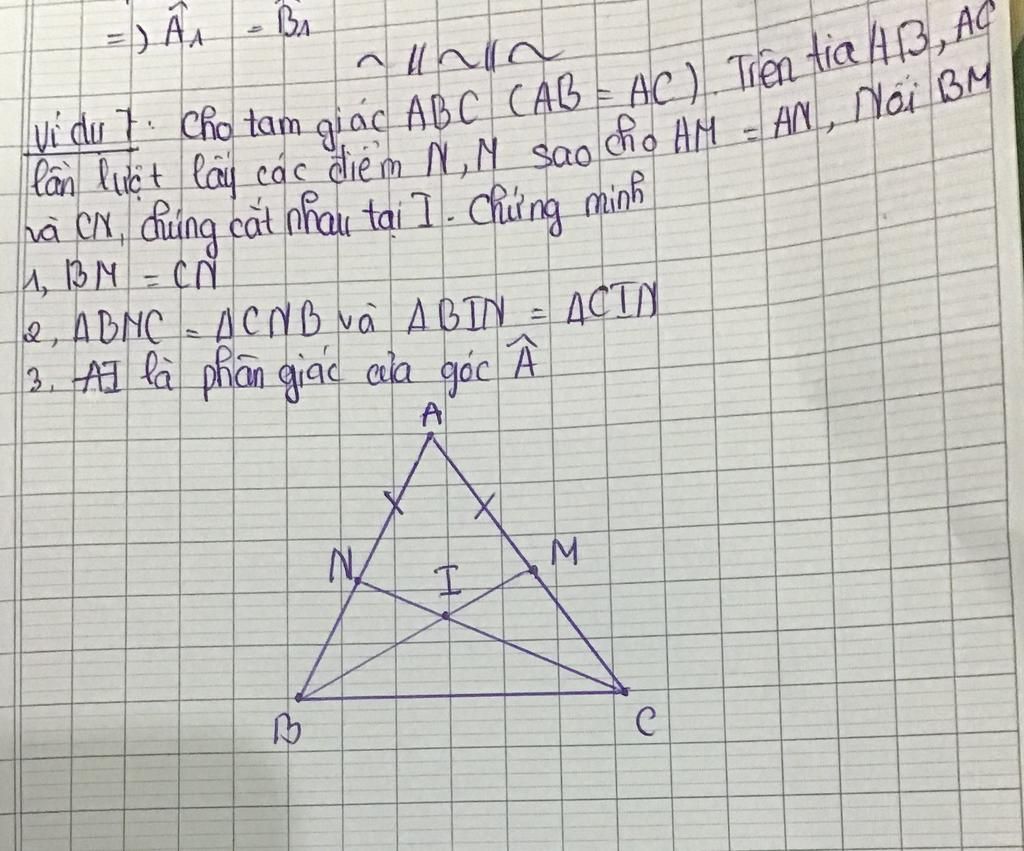 =) Â₁ = B̂₁
~ || ~ || ~
Ví dụ 7: Cho tam giác ABC (AB = AC). Trên tia AB, AC
lần lượt lấy các điểm N, M sao cho AM = AN, Nối BM
và CN, chúng cắt nhau tại I. Chứng minh
1, BM = CN
2, ΔBMC = ΔCNB và ΔBIN = ΔCIM
3. AI là phân giác của góc Â
A
N
I
M
B
C